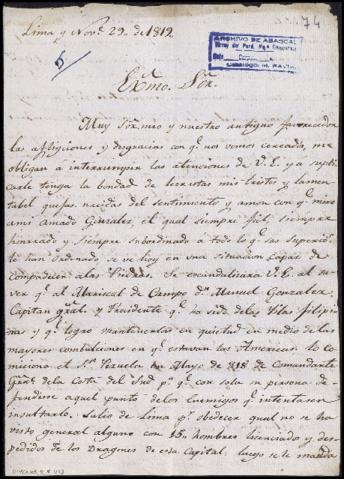 74
Lima y Nov.e 29. de 1819
ARCHIVO DE ABASCAL
5
Exmo. Sor.
Muy Sor. mio y nuestro antiguo favorecedor
las aflicciones y desgracias con q.e nos vemos cercados, me
obligan á interrumpir las atenciones de V.E. y a supli-
carle tenga la bondad de leer estos mis tristes y lamen-
tables quejas, nacidas del sentimiento y amor con q.e miro
ami amado Gonzalez, el qual siempre fiel, siempre
honrrado y siempre subordinado a todo lo q.e sus superio-
res han ordenado se ve hoy en una situacion capáz de
compadecer alas Piedras. Se escandalizará V.E. al sa-
ver q.e al Mariscal de Campo D.n Manuel Gonzalez,
Capitan gral. y Presidente q.e ha sido delas Yslas Filipi-
nas y q.e logro mantenerlas en quietud en medio delas
mayores combulciones en q.e estavan las Americas lo co-
misiono el S.or Pezuela en Mayo de 818 de Comandante
Gral. dela Costa del Sud p.a q.e con sola su persona de-
fendiese aquel punto delos Enemigos q.e intentasen
insultarlo. Salio de Lima p.r obedecer qual no se ha
visto general alguno con 15, hombres licenciados y des-
pedidos de los Dragones de esta Capital, luego se le manda